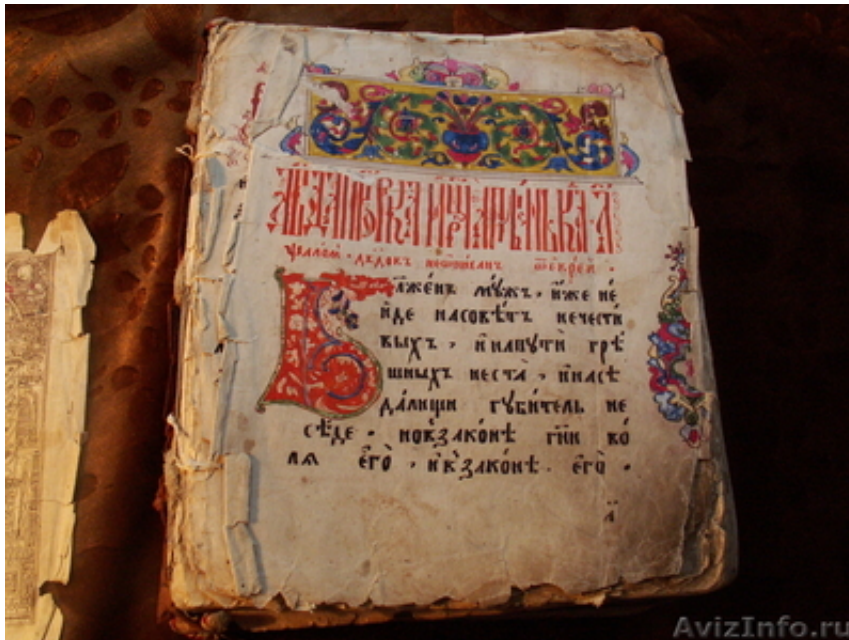 ѱаломъ · дв҃довъ
Бл҃женъ мꙋжъ · и҆́же не
и҆́де насовѣ́тъ нечести
выхъ · и҆напꙋтѝ грѣ́
шныхъ неста̀ · и҆насѣ
да́лищи гꙋби́тель не
сѣ́де · новзако́нѣ гн҃и во́
лѧ є҆гѡ̀ · и҆взако́нѣ · є҆гѡ̀ ·
а҃
AvizInfo.ru